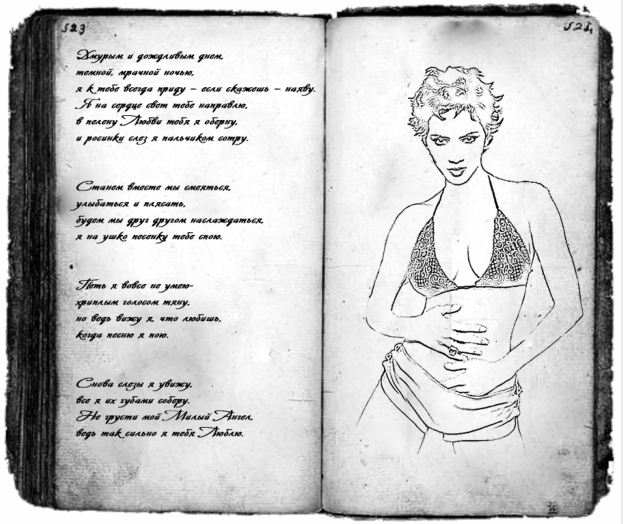 523
521
Хмурым и дождливым днем,
темной, мрачной ночью,
я к тебе всегда приду – если скажешь – наяву.
Я на сердце свет тебе направлю,
в пелену Любви тебя я оберну,
и росинки слез я пальчиком сотру.
Станем вместе мы смеяться,
улыбаться и плясать,
будем мы друг другом наслаждаться,
я на ушко песенку тебе спою.
Петь я вовсе не умею-
хриплым голосом тяну,
но ведь вижу я, что любишь,
когда песню я пою.
Снова слезы я увижу,
все я их губами соберу.
Не грусти мой Милый Ангел,
ведь так сильно я тебя Люблю.